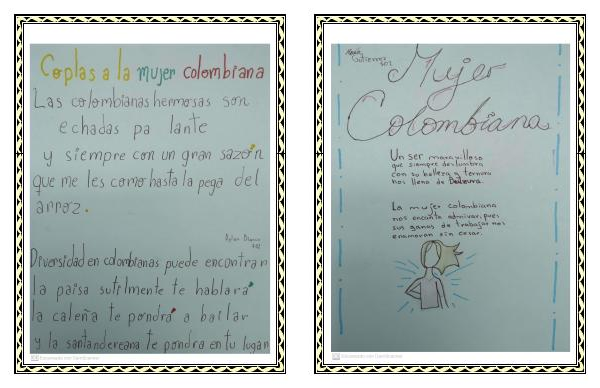 Coplas a la mujer colombiana
Las colombianas hermosas son
echadas pa lante
y siempre con un gran sazón
que me les como hasta la pega del
arroz.
Dylan Blanco
702
Diversidad en colombianas puede encontrar
la paisa sutilmente te hablara
la caleña te pondrá a bailar
y la santandereana te pondra en tu lugar
Gutierrez
702
Mujer
Colombiana
Un ser maravilloso
que siempre deslumbra
con su belleza y ternura
nos llena de Dulzura
La mujer colombiana
nos encanta admirar, pues
sus ganas de trabajar nos
enamoran sin cesar.
Escaneado con CamScanner
Escaneado con CamScanner